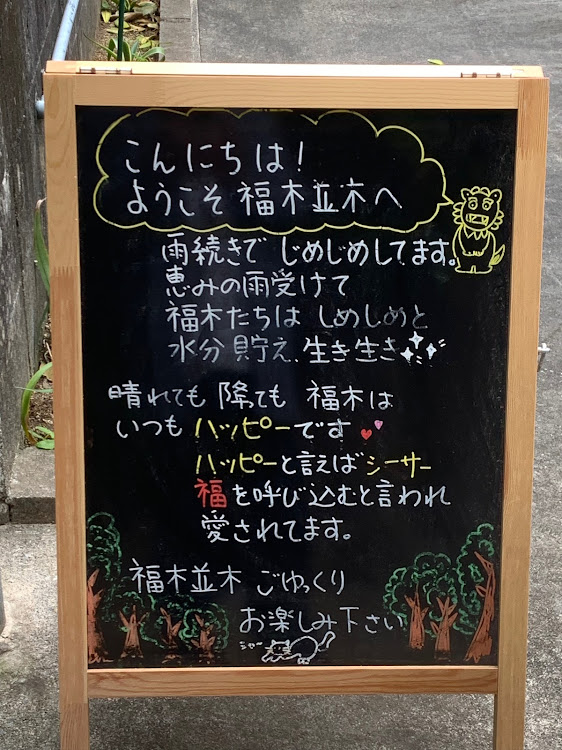 こんにちは！
ようこそ 福木並木へ
雨続きで じめじめしてます。
恵みの雨受けて
福木たちは しめしめと
水分貯え 生き生き
晴れても 降ても 福木は
いつも ハッピーです
ハッピーと言えば シーサー
福を呼び込むと言われ
愛されてます。
福木並木 ごゆっくり
お楽しみ下さい